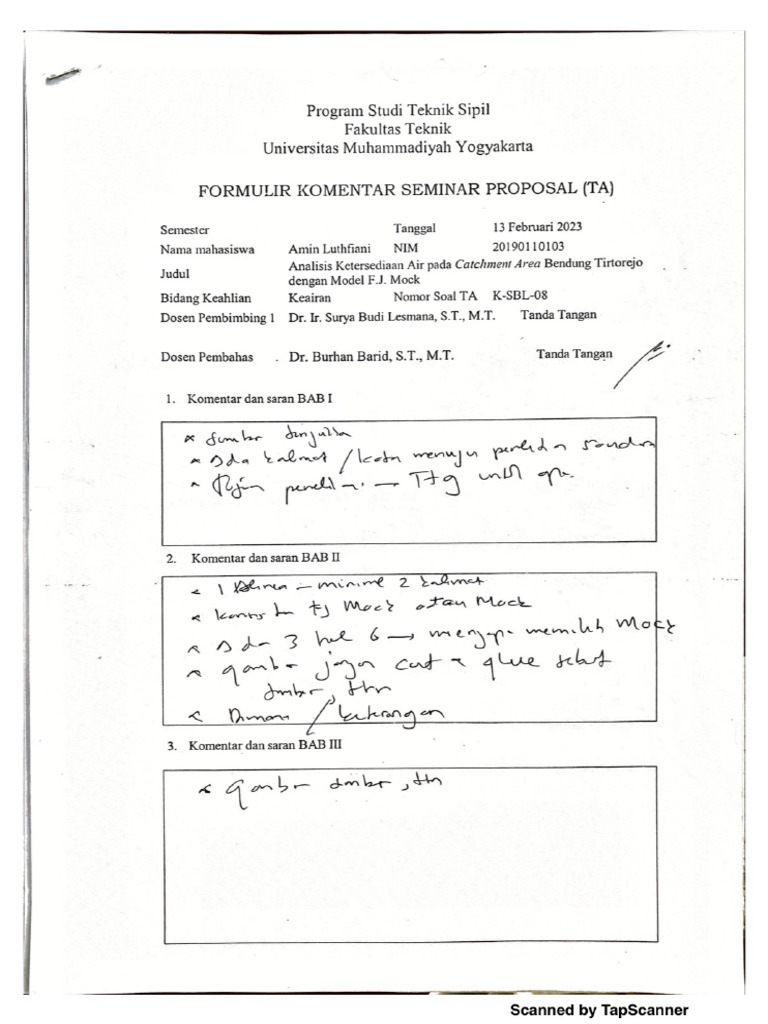 Program Studi Teknik Sipil
Fakultas Teknik
Universitas Muhammadiyah Yogyakarta
FORMULIR KOMENTAR SEMINAR PROPOSAL (TA)
Semester Tanggal 13 Februari 2023
Nama mahasiswa Amin Luthfiani NIM 20190110103
Judul Analisis Ketersediaan Air pada Catchment Area Bendung Tirtorejo
dengan Model F.J. Mock
Bidang Keahlian Keairan Nomor Soal TA K-SBL-08
Dosen Pembimbing 1 Dr. Ir. Surya Budi Lesmana, S.T., M.T. Tanda Tangan
Dosen Pembahas Dr. Burhan Barid, S.T., M.T. Tanda Tangan
1. Komentar dan saran BAB I
Sumber
Ada kalimat / kata menuju
2. Komentar dan saran BAB II
1 Alinea minimal 2 kalimat
Mock atau Mock
3 hal 6 → memilih Mock
gambar cut glue
sumber, thn
/ keterangan
3. Komentar dan saran BAB III
Gambar sumber, thn
Scanned by TapScanner